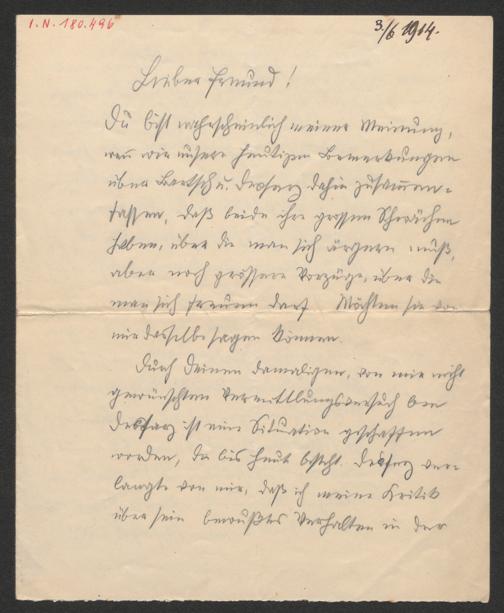 I.N. 180.496
3/6 1914.
Lieber Freund!
Du bist wahrscheinlich meiner Meinung,
wenn wir unsere heutigen Bemerkungen
über Bartsch u. Decsey dahin zusammen-
fassen, daß beide ihre grossen Schwächen
haben, über die man sich ärgern muß,
aber noch grössere Vorzüge, über die
man sich freuen darf. Möchten sie von
mir dasselbe sagen können.
Durch deinen damaligen, von mir nicht
gewünschten Vermittlungsversuch bei
Decsey ist eine Situation geschaffen
worden, die bis heut besteht. Decsey ver-
langte von mir, daß ich meine Kritik
über sein bewußtes Verhalten in der